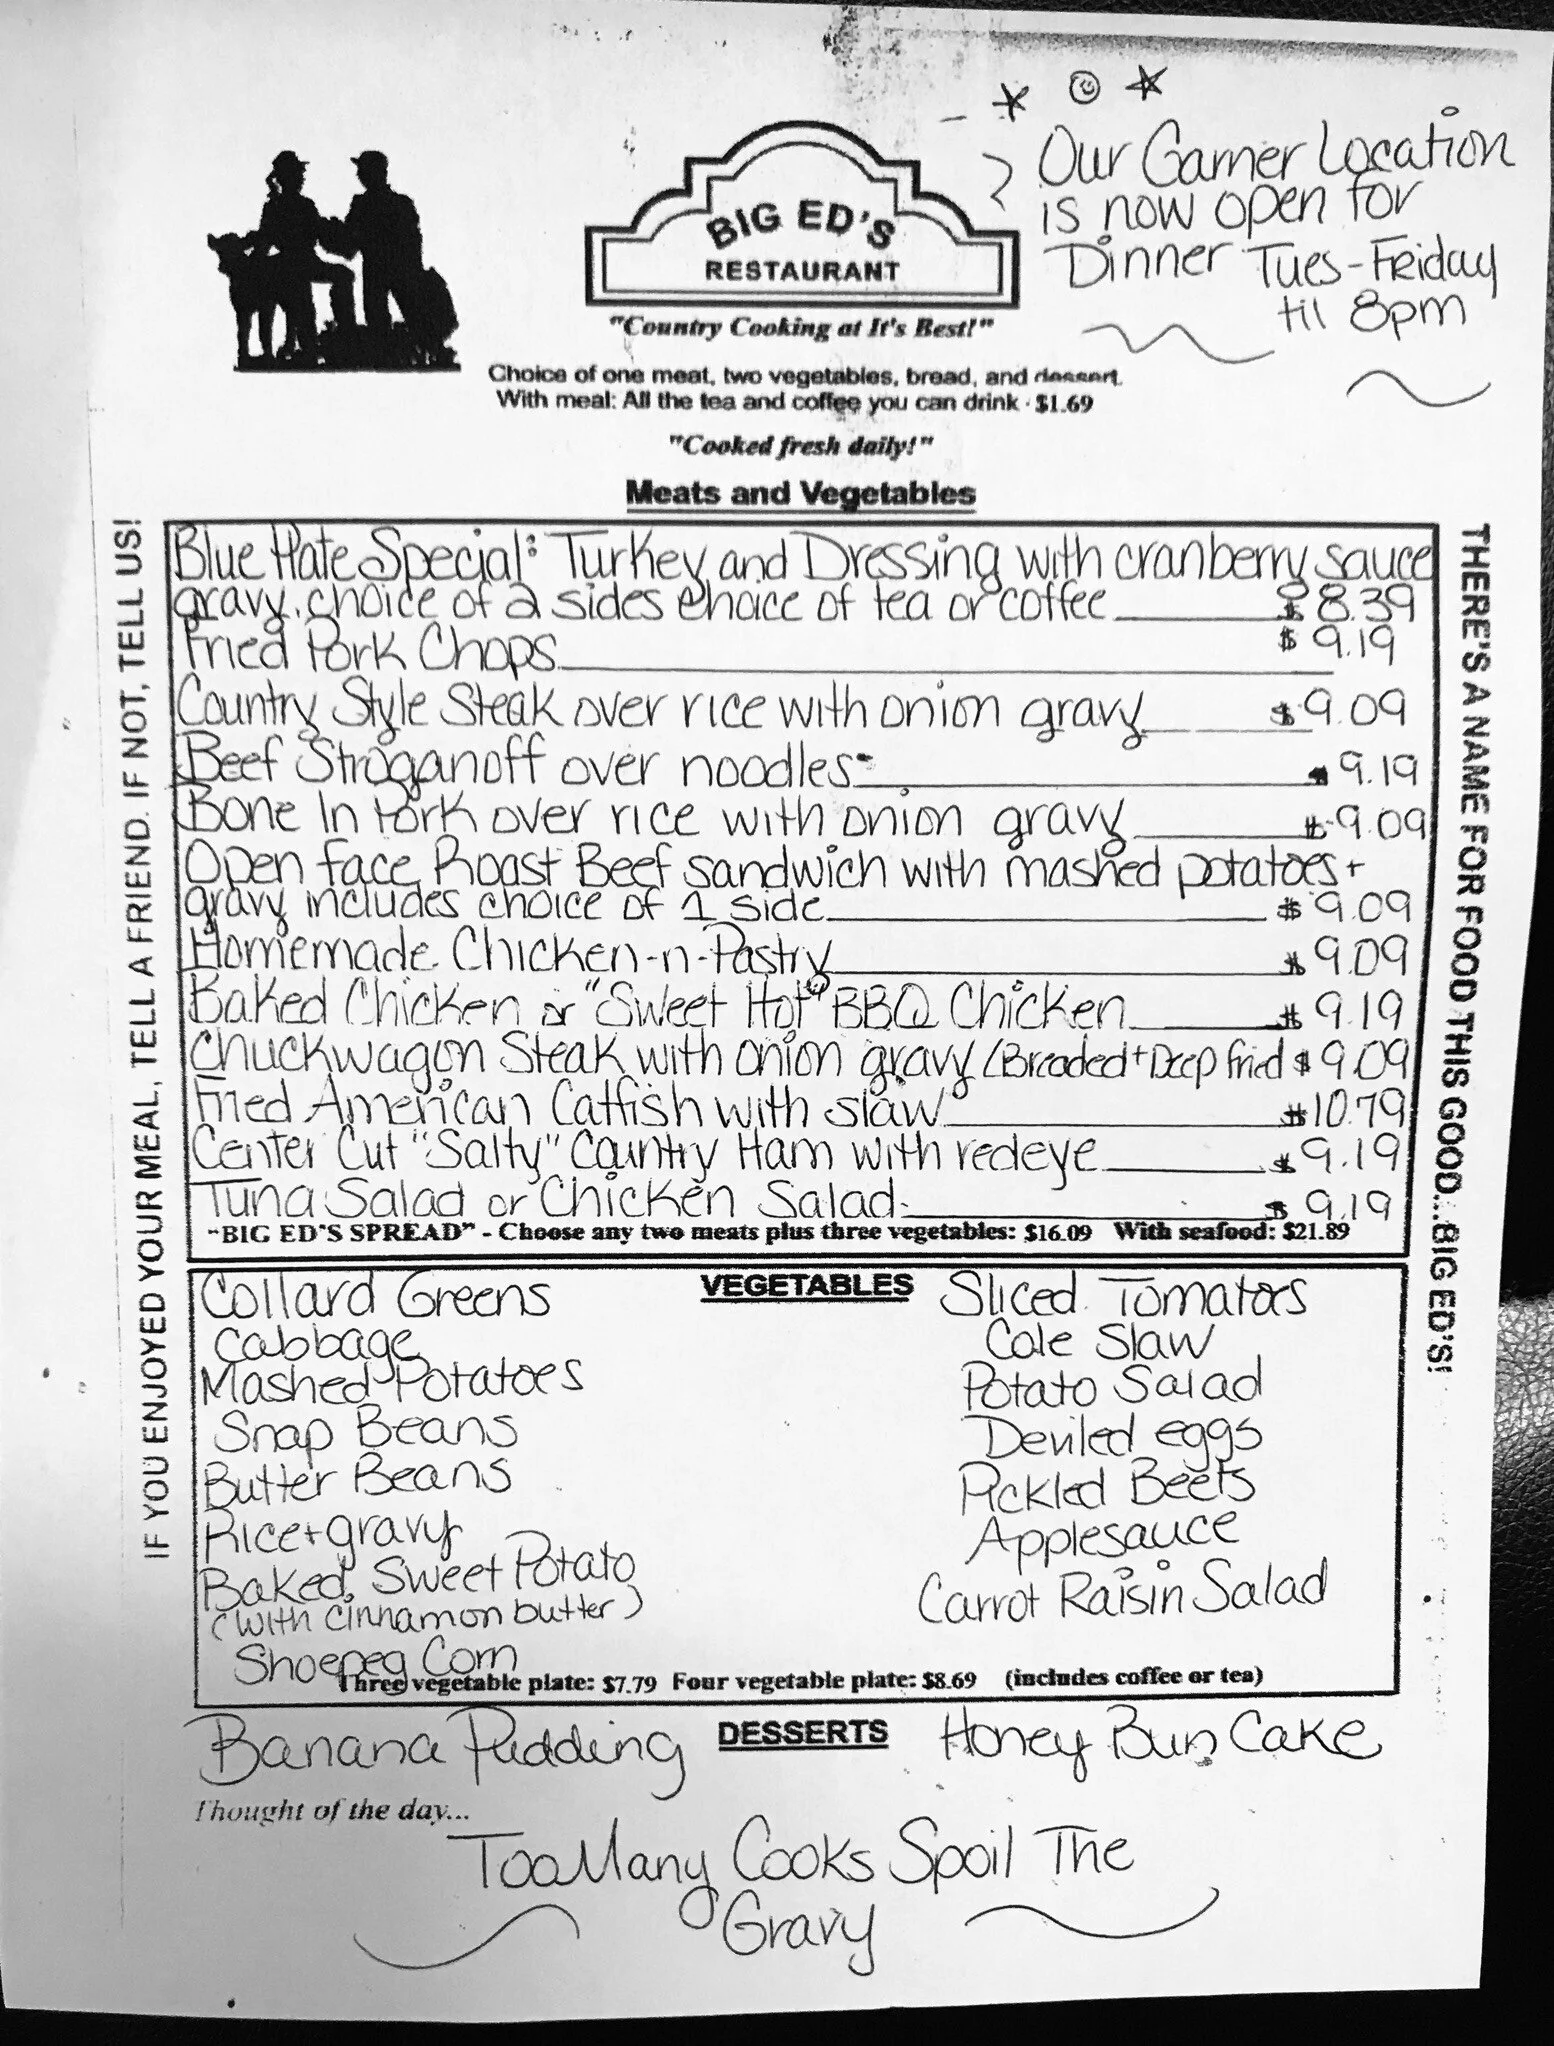 Our Garner Location
is now open for
Dinner Tues-Friday
til 8pm
BIG ED'S
RESTAURANT
"Country Cooking at It's Best!"
Choice of one meat, two vegetables, bread, and dessert.
With meal: All the tea and coffee you can drink · $1.69
"Cooked fresh daily!"
Meats and Vegetables
IF YOU ENJOYED YOUR MEAL, TELL A FRIEND. IF NOT, TELL US!
Blue Plate Special: Turkey and Dressing with cranberry sauce
gravy, choice of 2 sides choice of tea or coffee $8.39
Fried Pork Chops $9.19
Country Style Steak over rice with onion gravy $9.09
Beef Stroganoff over noodles 9.19
Bone In Pork over rice with onion gravy $9.09
Open face Roast Beef sandwich with mashed potatoes +
gravy includes choice of 1 side $9.09
Homemade Chicken-n-Pastry $9.09
Baked Chicken or "Sweet Hot" BBQ Chicken $9.19
Chuckwagon Steak with onion gravy (Breaded + Deep fried $9.09
Fried American Catfish with slaw $10.79
Center Cut "Salty" Country Ham with redeye $9.19
Tuna Salad or Chicken Salad $9.19
"BIG ED'S SPREAD" - Choose any two meats plus three vegetables: $16.09 With seafood: $21.89
THERE'S A NAME FOR FOOD THIS GOOD...BIG ED'S!
VEGETABLES
Collard Greens
Cabbage
Mashed Potatoes
Snap Beans
Butter Beans
Rice + gravy
Baked Sweet Potato
(with cinnamon butter)
Shoepeg Corn
Sliced Tomatoes
Cole Slaw
Potato Salad
Deviled eggs
Pickled Beets
Applesauce
Carrot Raisin Salad
Three vegetable plate: $7.79 Four vegetable plate: $8.69 (includes coffee or tea)
DESSERTS
Banana Pudding
Honey Bun Cake
Thought of the day...
Too Many Cooks Spoil The
Gravy